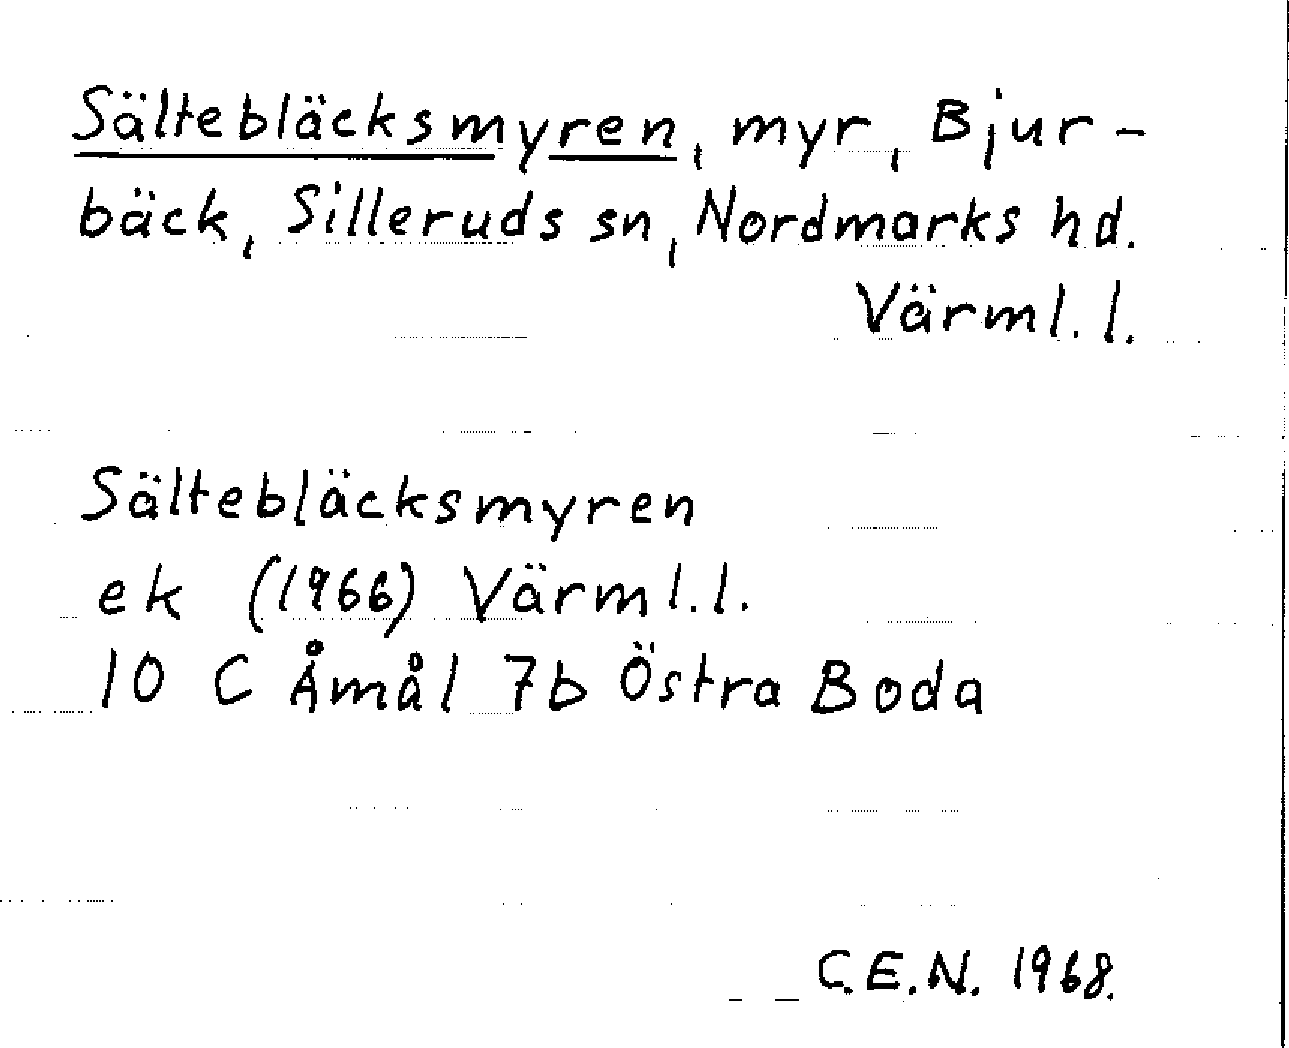 Sältebläcksmyren, myr, Bjur-
bäck, Silleruds sn, Nordmarks hd.
Värml. l.
Sältebläcksmyren
ek (1966) Värml. l.
10 C Åmål 7b Östra Boda
C.E.N. 1968.